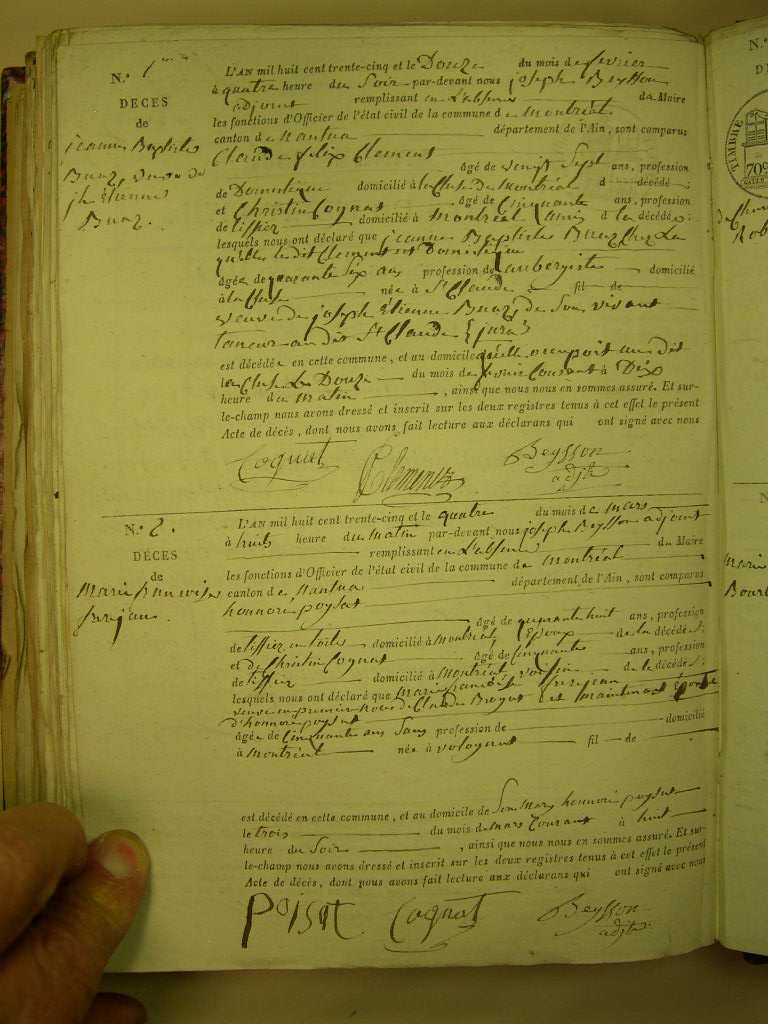 N.° 1
DECES
de
jeanne Baptiste
Buaz, veuve de
jh Etienne
Buaz.
L'AN mil huit cent trente-cinq et le Douze du mois de fevrier
à quatre heure du Soir par-devant nous joseph Beysson
adjoint remplissant en L'absence du Maire
les fonctions d'Officier de l'état civil de la commune de Montréal
canton de Nantua département de l'Ain, sont comparus
Claude felix Clement
âgé de vingt Sept ans, profession
de Domestique domicilié à la Cluse de Montréal d décédé
et Christin Cognat âgé de Cinquante ans, profession
de tissier domicilié à Montréal amis d la décédée;
lesquels nous ont déclaré que jeanne Baptiste Buaz Chez La
quelle ledit Clement est Domestique
âgée de quarante Six ans profession de aubergiste domicilié
à la Cluse née à St Claude fil de
veuve de joseph Etienne Buaz de Son vivant
tanneur au dit St Claude (jura)
est décédée en cette commune, et au domicile qu'elle occupoit au dit
la Cluse Le Douze du mois de fevrier Courant à Dix
heure du Matin, ainsi que nous nous en sommes assuré. Et sur-
le-champ nous avons dressé et inscrit sur les deux registres tenus à cet effet le présent
Acte de décès, dont nous avons fait lecture aux déclarans qui ont signé avec nous
Cognat Clement Beysson
adjt
N.° 2.
DÉCES
de
Marie francoise
jurijean
L'AN mil huit cent trente-cinq et le quatre du mois de Mars
à huit heure du Matin par-devant nous joseph Beysson adjoint
remplissant en L'absence du Maire
les fonctions d'Officier de l'état civil de la commune de Montréal
canton de Nantua département de l'Ain, sont comparus
honnore poysat
âgé de quarante huit ans, profession
de tissier en toile domicilié à Montréal Epoux de la décédée;
et de Christin Cognat âgé de Cinquante ans, profession
de tissier domicilié à Montréal voisin de la décédée;
lesquels nous ont déclaré que Marie francoise jurijean
veuve en premier noce de Claude et maintenant épouse
d'honnore poysat
âgée de Cinquante ans Sans profession de domicilié
à Montréal née à volognat fil de
est décédé en cette commune, et au domicile de Son Mary honnoré poysat
le trois du mois de Mars Courant à huit
heure du Soir, ainsi que nous nous en sommes assuré. Et sur-
le-champ nous avons dressé et inscrit sur les deux registres tenus à cet effet le présent
Acte de décès, dont nous avons fait lecture aux déclarans qui ont signé avec nous
Poisat Cognat Beysson
adjt
N
D
TIMBRE
70c
N
Marie